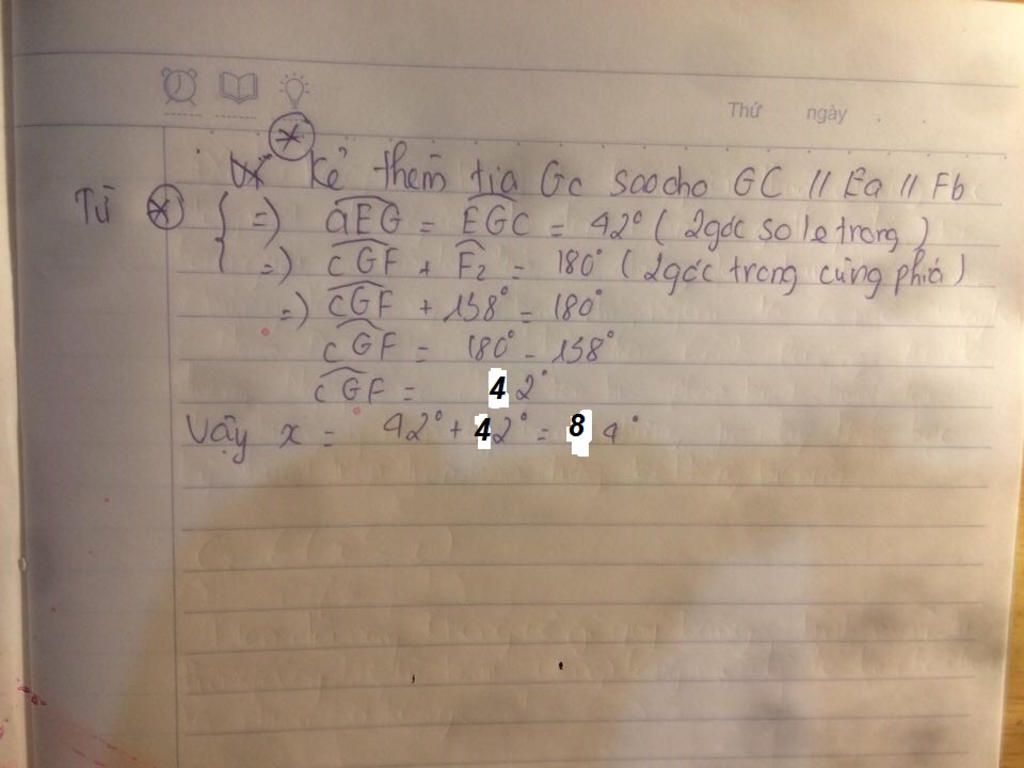 Thứ ngày
Kẻ thêm tia Gc sao cho GC // Ea // Fb
Từ (*) { => aEG = EGC = 42° ( 2 góc so le trong )
=> cGF + F2 = 180° ( 2 góc trong cùng phía )
=> cGF + 138° = 180°
cGF = 180° - 138°
cGF = 42°
Vậy x = 42° + 42° = 84°